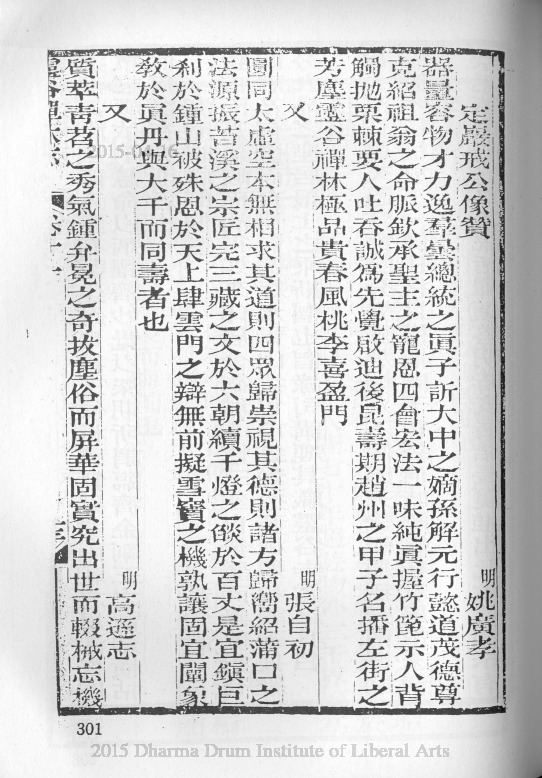 定巖戒公像贊
明 姚廣孝
器量容物才力逸羣曇總統之眞子訢大中之嫡孫解元行懿道茂德尊
克紹祖翁之命脈欽承聖主之寵恩四會宏法一味純眞握竹篦示人背
觸拋栗棘要人吐吞誠爲先覺啟迪後昆壽期趙州之甲子名播左街之
芳塵靈谷禪林極品貴春風桃李喜盈門
又
明 張自初
圓同太虛空本無相求其道則四眾歸崇視其德則諸方歸嚮紹蒲口之
法源振苕溪之宗匠完三藏之文於六朝續千燈之燄於百丈是宜鎭巨
剎於鍾山被殊恩於天上肆雲門之辯無前擬雪竇之機孰讓固宜闡象
敎於眞丹與大千而同壽者也
又
明 高遜志
質萃靑苕之秀氣鍾弁冕之奇拔塵俗而屏華固實究出世而輟械忘機
靈谷禪林志
卷十一
301
2015-04-16
2015 Dharma Drum Institute of Liberal Arts